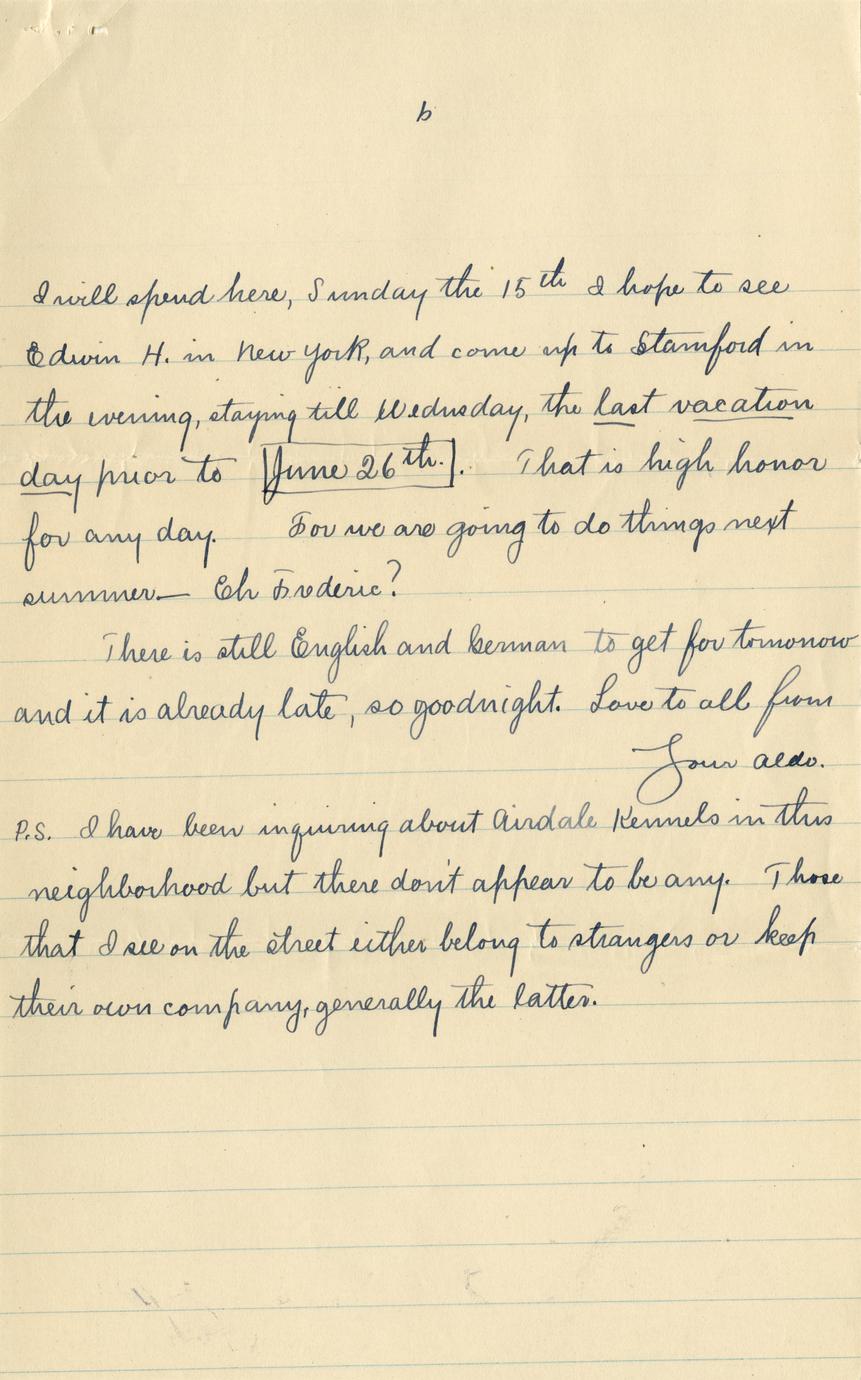 6
I will spend here, Sunday the 15th I hope to see
Edwin H. in New York, and come up to Stamford in
the evening, staying till Wednesday, the last vacation
day prior to [June 26th.]. That is high honor
for any day. For we are going to do things next
summer— Eh Frederic?
There is still English and German to get for tomorrow
and it is already late, so goodnight. Love to all from
Your Aldo.
P.S. I have been inquiring about Airdale Kennels in this
neighborhood but there don't appear to be any. Those
that I see on the street either belong to strangers or keep
their own company, generally the latter.